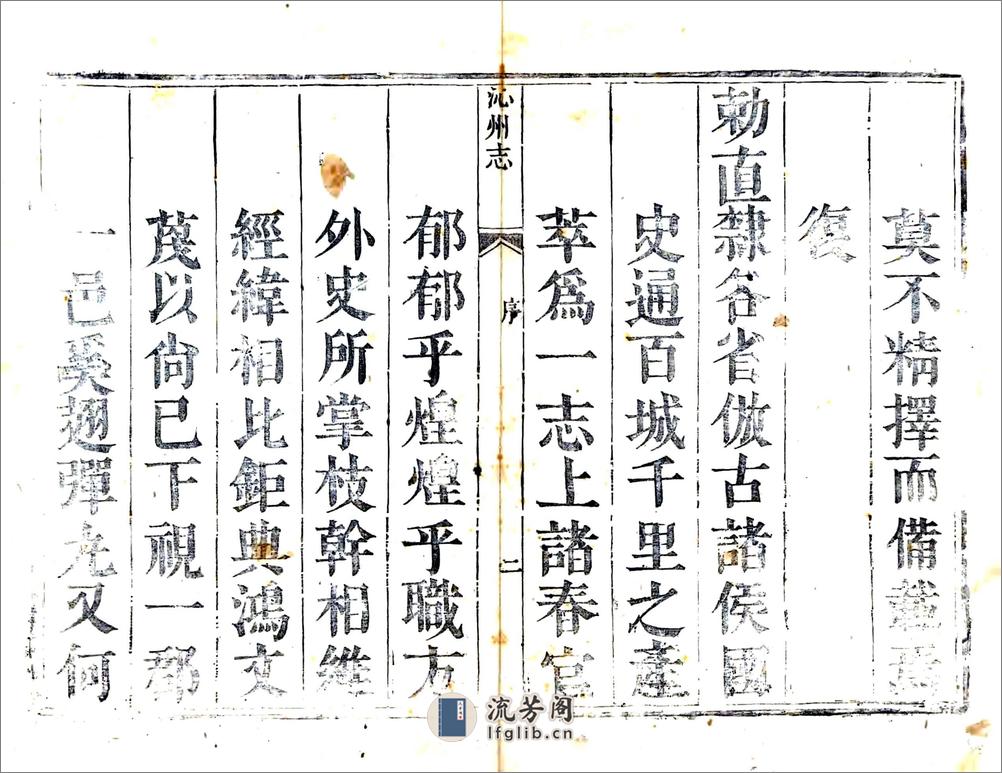 莫不精擇而備載焉
復
勅直隸各省倣古諸侯國
史通百城千里之
萃爲一志上諸春官
沁州志
序
二
郁郁乎煌煌乎職方
外史所掌枝幹相維
經緯相比鉅典鴻文
蔑以尙已下視一郡
一邑奚翅彈丸又何
流芳阁
lfglib.cn